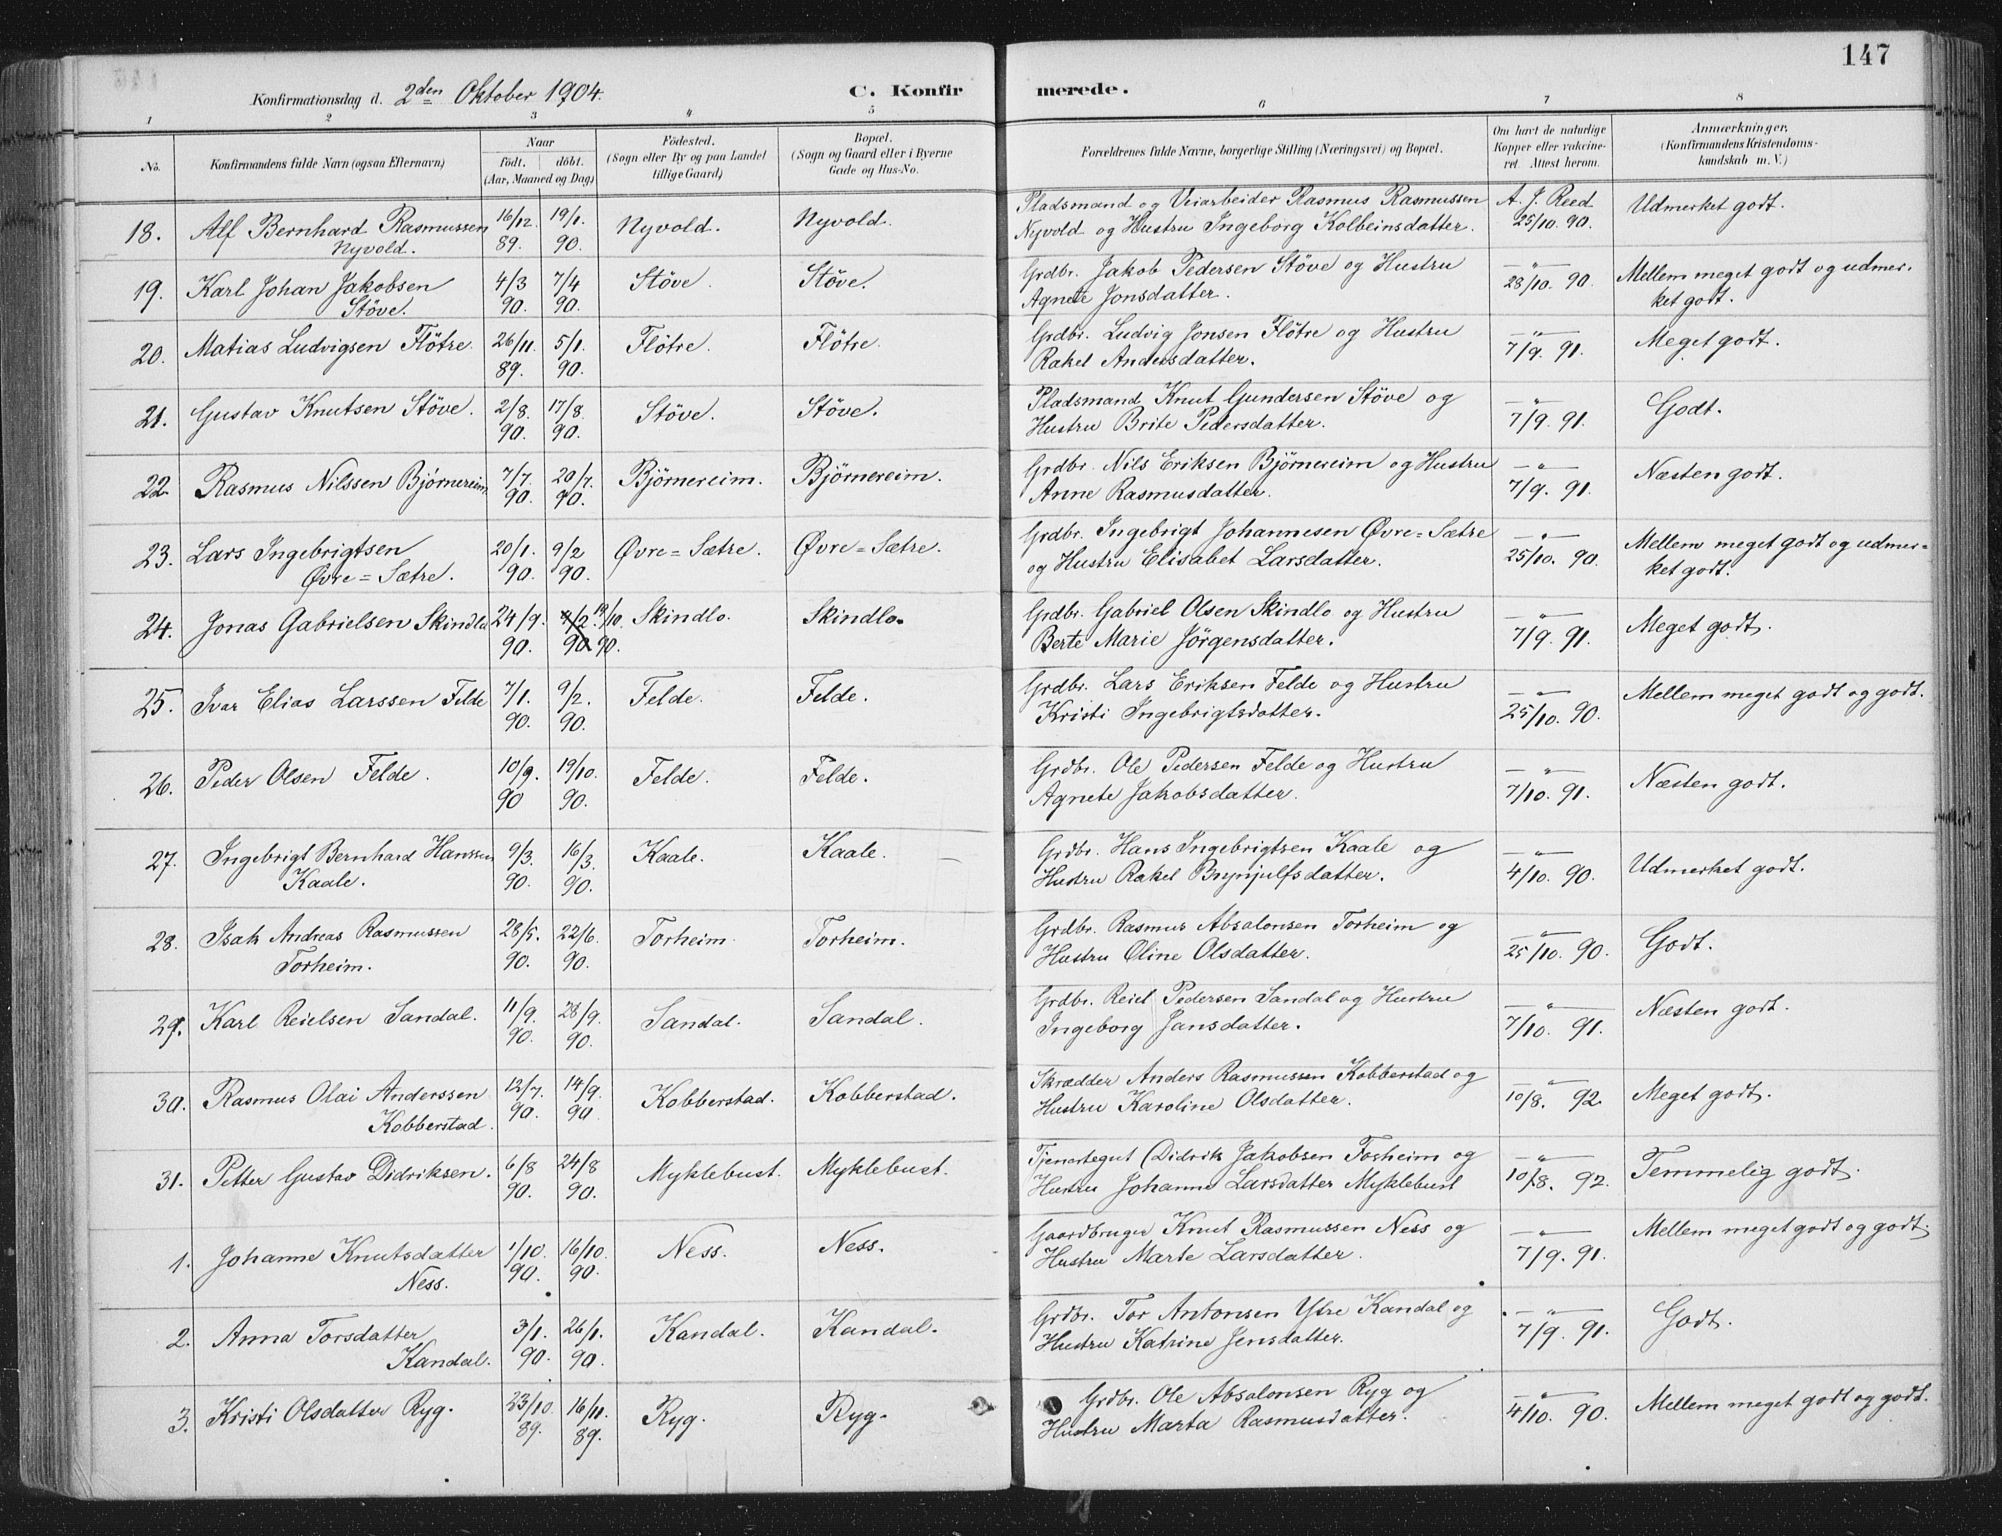 147
Konfirmationsdag d. 2den Oktober 1904.
C. Konfirmerede.
1 2 3 4 5 6 7 8
No. Konfirmandens fulde Navn (ogsaa Efternavn) Naar født. døbt. (Aar, Maaned og Dag) Födested. (Sogn eller By og paa Landet tillige Gaard) Bopæl. (Sogn og Gaard eller i Byerne Gade og Hus-No. Forældrenes fulde Navne, borgerlige Stilling (Næringsvei) og Bopæl. Om havt de naturlige Kopper eller vakcineret. Attest herom. Anmærkninger. (Konfirmandens Kristendomskundskab m. V.)
18. Alf Bernhard Rasmussen 16/12. 19/1. Nyvold. Nyvold. Pladsmand og Veiarbeider Rasmus Rasmussen A. J. Reed Udmerket godt.
Nyvold. 89. 90. Nyvold og Hustru Ingeborg Kolbeinsdatter. 25/10. 90.
19. Karl Johan Jakobsen 4/3 7/4 Støve. Støve. Grdbr. Jakob Pedersen Støve og Hustru — " — Mellem meget godt og udmer-
Støve. 90. 90. Agnete Jonsdatter. 28/10. 90. ket godt.
20. Matias Ludvigsen Fløtre. 26/11. 5/1. Fløtre. Fløtre. Grdbr. Ludvig Jonsen Fløtre og Hustru — " — Meget godt.
89. 90. Rakel Andersdatter. 7/9. 91.
21. Gustav Knutsen Støve. 2/8. 17/8. Støve. Støve. Pladsmand Knut Gundersen Støve og — " — Godt.
90. 90. Hustru Brite Pedersdatter. 7/9. 91.
22. Rasmus Nilssen Bjørnereim 7/7. 20/7. Bjørnereim. Bjørnereim. Grdbr. Nils Eriksen Bjørnereim og Hustru — " — Næsten godt.
90. 90. Anne Rasmusdatter. 7/9. 91.
23. Lars Ingebrigtsen 20/1. 9/2 Øvre=Sætre. Øvre=Sætre. Grdbr. Ingebrigt Johannesen Øvre=Sætre — " — Mellem meget godt og udmer-
Øvre=Sætre. 90. 90. og Hustru Elisabet Larsdatter. 25/10. 90. ket godt.
24. Jonas Gabrielsen Skindlo 24/9. 19/10. Skindlo. Skindlo. Grdbr. Gabriel Olsen Skindlo og Hustru — " — Meget godt.
90. 90 90. Berte Marie Jørgensdatter. 7/9. 91.
25. Ivar Elias Larssen Felde 7/1. 9/2. Felde. Felde. Grdbr. Lars Eriksen Felde og Hustru — " — Mellem meget godt og godt.
90. 90. Kristi Ingebrigtsdatter. 25/10. 90.
26. Peder Olsen Felde. 10/9. 19/10. Felde. Felde. Grdbr. Ole Pedersen Felde og Hustru — " — Næsten godt.
90 90. Agnete Jakobsdatter. 7/10. 91.
27. Ingebrigt Bernhard Hanssen 9/3. 16/3 Kaale. Kaale. Grdbr. Hans Ingebrigtsen Kaale og — " — Udmerket godt.
Kaale. 90. 90. Hustru Rakel Brynjulfsdatter. 4/10. 90.
28. Isak Andreas Rasmussen 28/5. 22/6. Torheim. Torheim. Grdbr. Rasmus Absalonsen Torheim og — " — Godt.
Torheim. 90. 90. Hustru Oline Olsdatter. 25/10. 90.
29. Karl Reielsen Sandal. 11/9. 28/9. Sandal. Sandal. Grdbr. Reiel Pedersen Sandal og Hustru — " — Næsten godt.
90. 90. Ingeborg Jansdatter. 7/10. 91.
30. Rasmus Olai Anderssen 12/7. 14/9. Kobberstad. Kobberstad. Skrædder Anders Rasmussen Kobberstad og — " — Meget godt.
Kobberstad. 90. 90. Hustru Karoline Olsdatter. 10/8. 92.
31. Petter Gustav Didriksen. 6/8 24/8 Myklebust. Myklebust. Tjenestegut (Didrik Jakobsen Torheim og — " — Temmelig godt.
90. 90. Hustru Johanne Larsdatter Myklebust 10/8. 92.
1. Johanne Knutsdatter 1/10. 16/10. Ness. Ness. Gaardbruger Knut Rasmussen Ness og — " — Mellem meget godt og godt.
Ness. 90. 90. Hustru Marte Larsdatter. 7/9. 91.
2. Anna Torsdatter 3/1. 26/1. Kandal. Kandal. Grdbr. Tor Antonsen Ytre Kandal og — " — Godt.
Kandal. 90. 90. Hustru Katrine Jensdatter. 7/9. 91.
3. Kristi Olsdatter Ryg. 23/10. 16/11. Ryg. Ryg. Grdbr. Ole Absalonsen Ryg og — " — Mellem meget godt og godt.
89. 89. Hustru Marta Rasmusdatter. 4/10. 90.